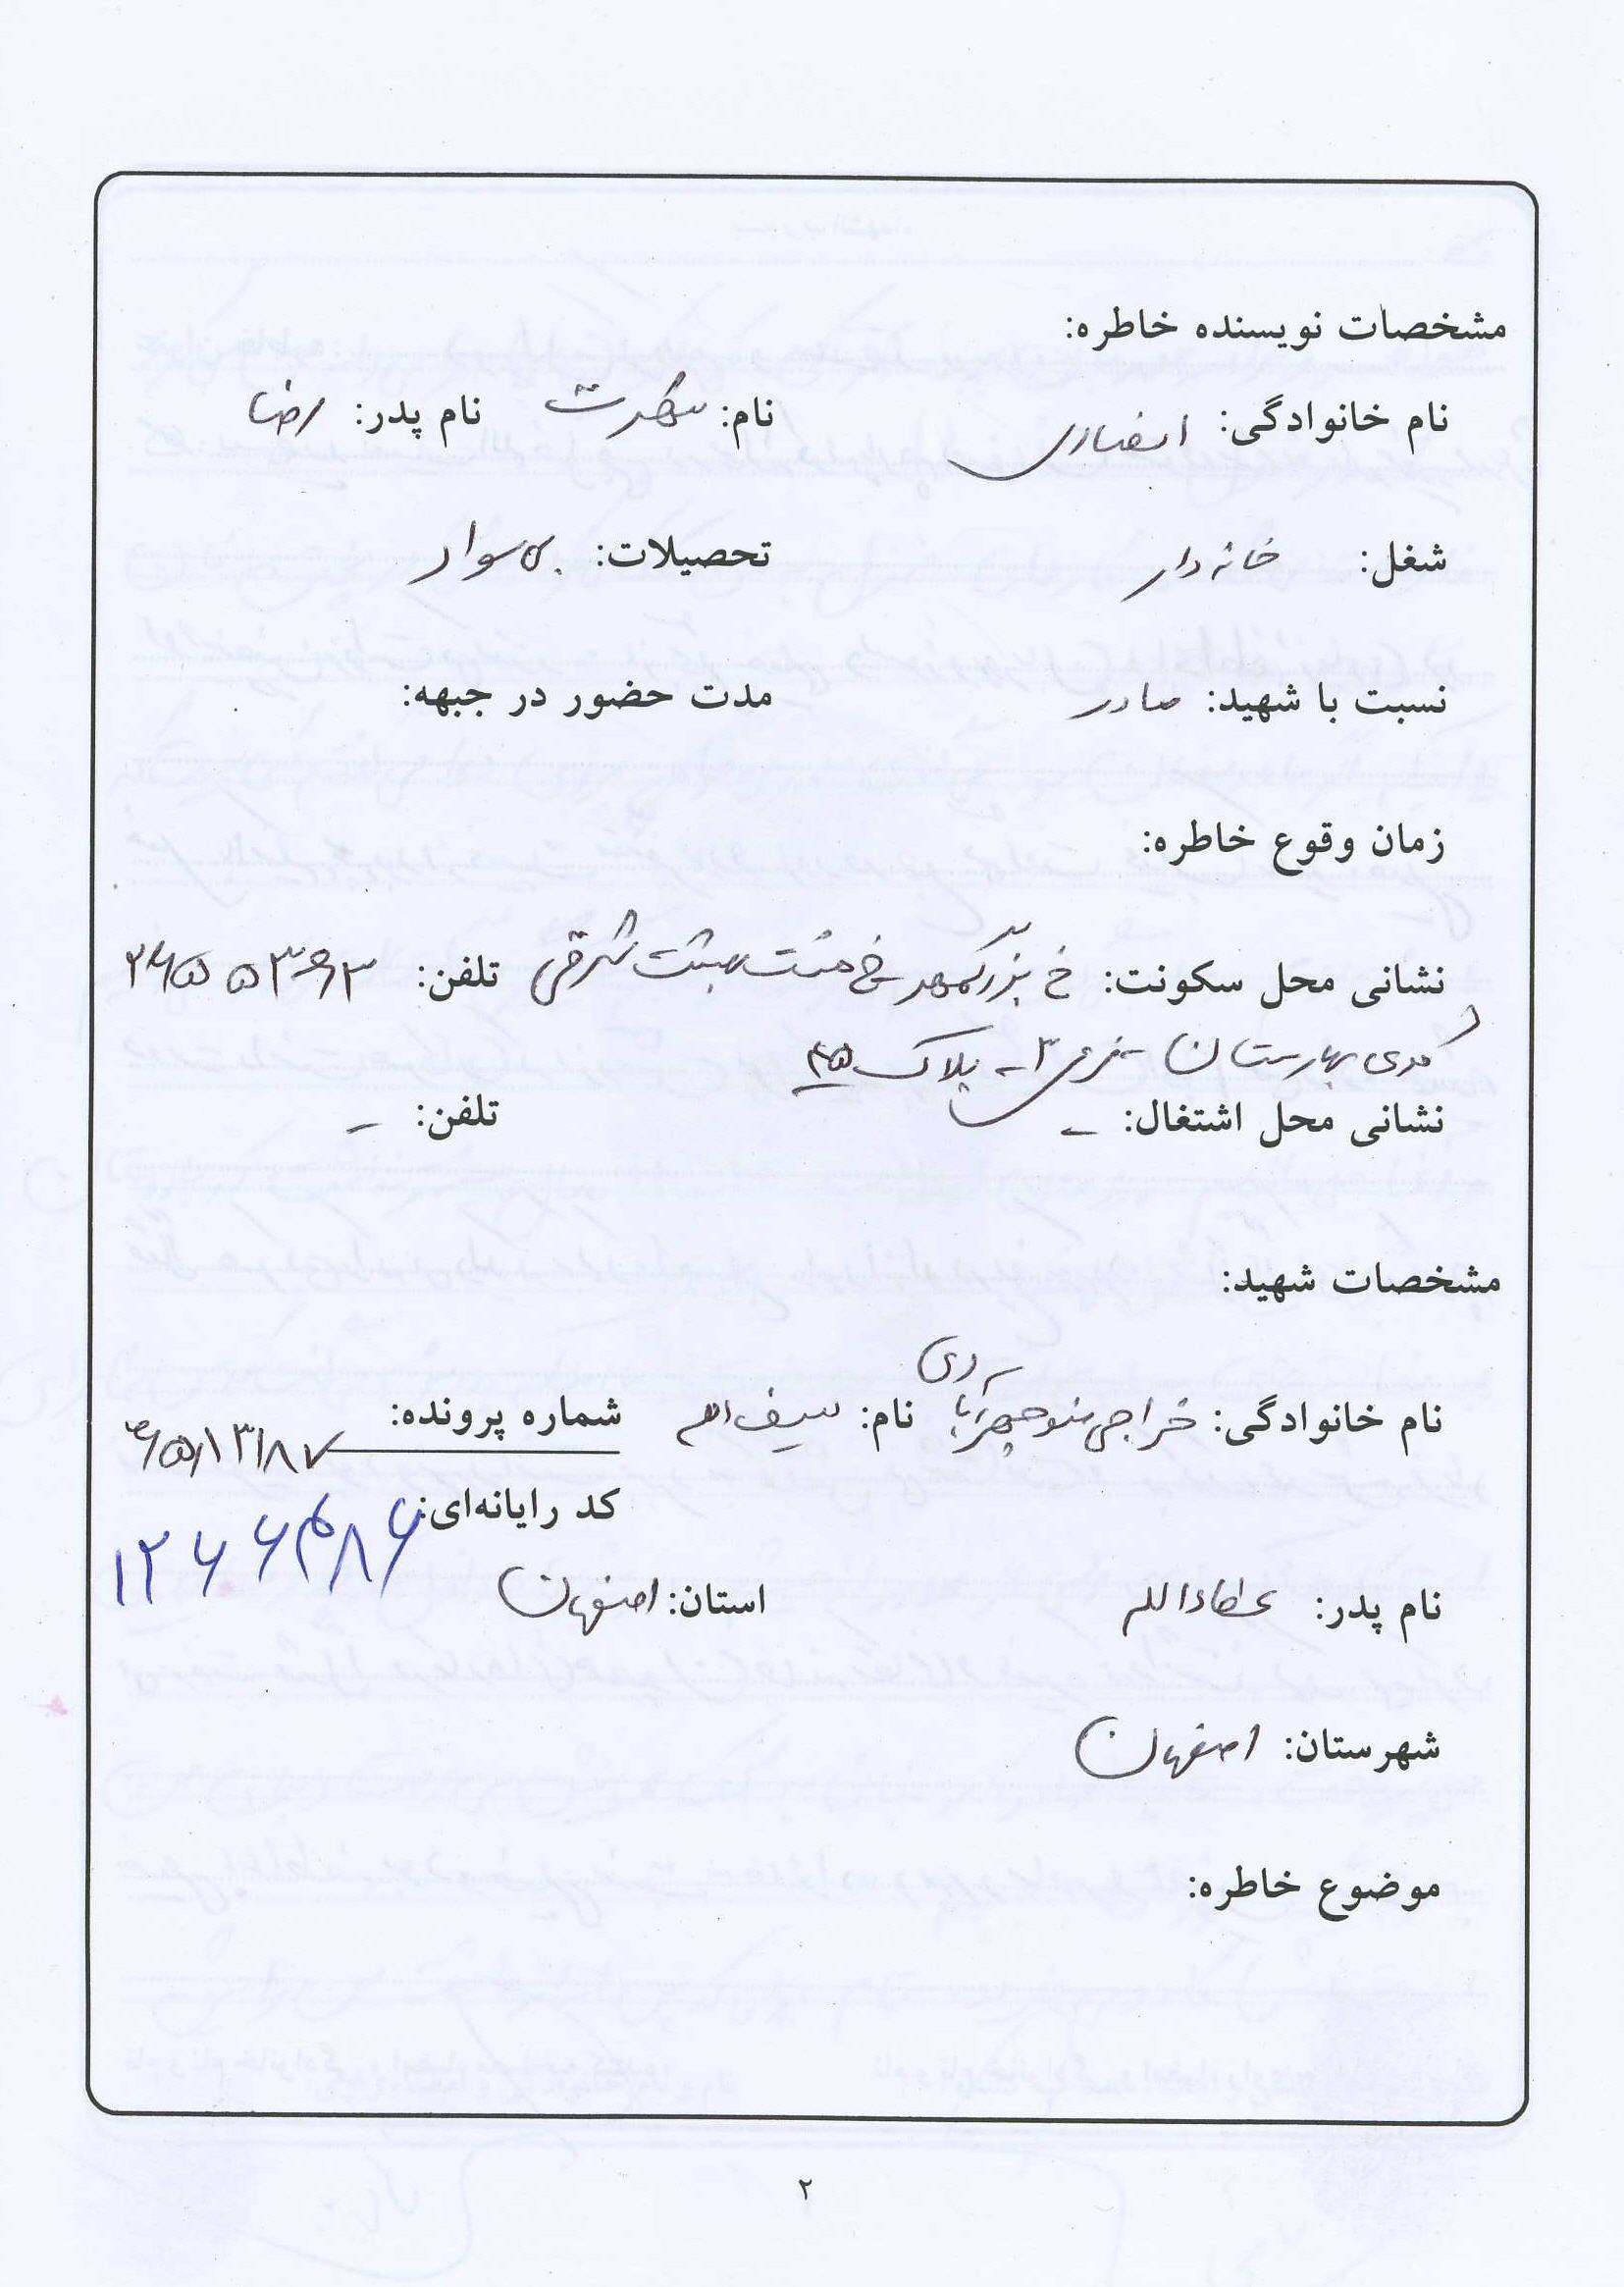 مشخصات نویسنده خاطره:
نام خانوادگی: انصاری نام: شهرت نام پدر: رضا
شغل: خانه دار تحصیلات: بی سواد
نسبت با شهید: مادر مدت حضور در جبهه:
زمان وقوع خاطره:
نشانی محل سکونت: خ بزرگمهر خ هشت بهشت شرقی تلفن:
کوی بهارستان - فرعی ۳ - پلاک ۴۵
نشانی محل اشتغال: - تلفن: -
مشخصات شهید:
نام خانوادگی: خراجی منوچهرآبادی نام: سیف اله شماره پرونده: ۶۵۱۳۱۸۷
کد رایانه‌ای: ۱۲۶۶۴۸۶
نام پدر: عطاءالله استان: اصفهان
شهرستان: اصفهان
موضوع خاطره:
۲